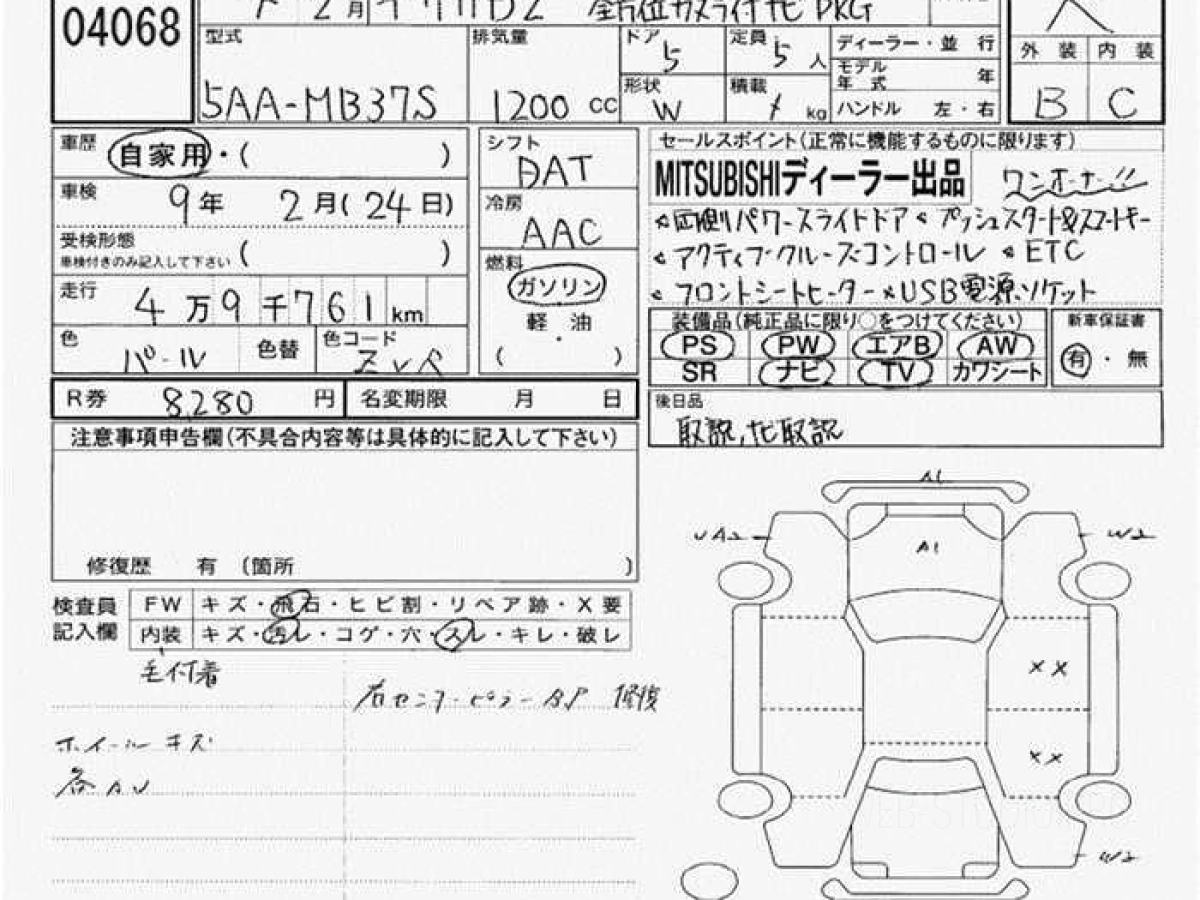 04068
2月
全方位カメラ付ナビPKG
型式 排気量 ドア 5 定員 5人 ディーラー・並行
モデル年式 年
外装 内装
5AA-MB37S 1200 cc 形状 W 積載 kg ハンドル 左・右
B C
車歴 自家用・( )
シフト DAT
セールスポイント(正常に機能するものに限ります)
MITSUBISHIディーラー出品 ワンオーナー!!
車検 9年 2月(24日)
冷房 AAC
両側パワースライドドア プッシュスタート&スマートキー
受検形態 車検付きのみ記入して下さい ( )
アクティブクルーズコントロール ETC
走行 4万9千761km
燃料 ガソリン
軽・油
( )
フロントシートヒーター USB電源ソケット
装備品(純正品に限り○をつけてください) 新車保証書
色 パール 色替 色コード ZVR
PS PW エアB AW 有・無
SR ナビ TV カワシート
R券 8,280 円 名変期限 月 日
後日品
取説,ナビ取説
注意事項申告欄(不具合内容等は具体的に記入して下さい)
修復歴 有 (箇所 )
A1
UA2 W2
A1
検査員記入欄 FW キズ・飛石・ヒビ割・リペア跡・X要
内装 キズ・汚レ・コゲ・穴・スレ・キレ・破レ
毛付着
右センターピラー 修復
XX
ホイールキズ
各AU
XX
W2